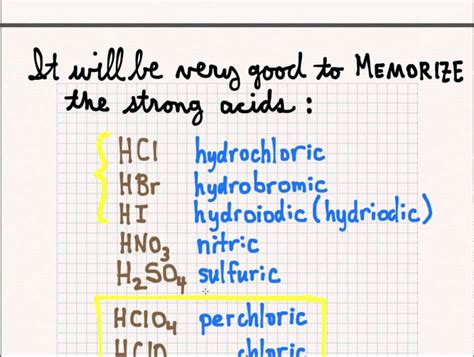 It will be very good to MEMORIZE
the strong acids:
HCl hydrochloric
HBr hydrobromic
HI hydroiodic (hydriodic)
HNO₃ nitric
H₂SO₄ sulfuric
HClO₄ perchloric
HClO chloric